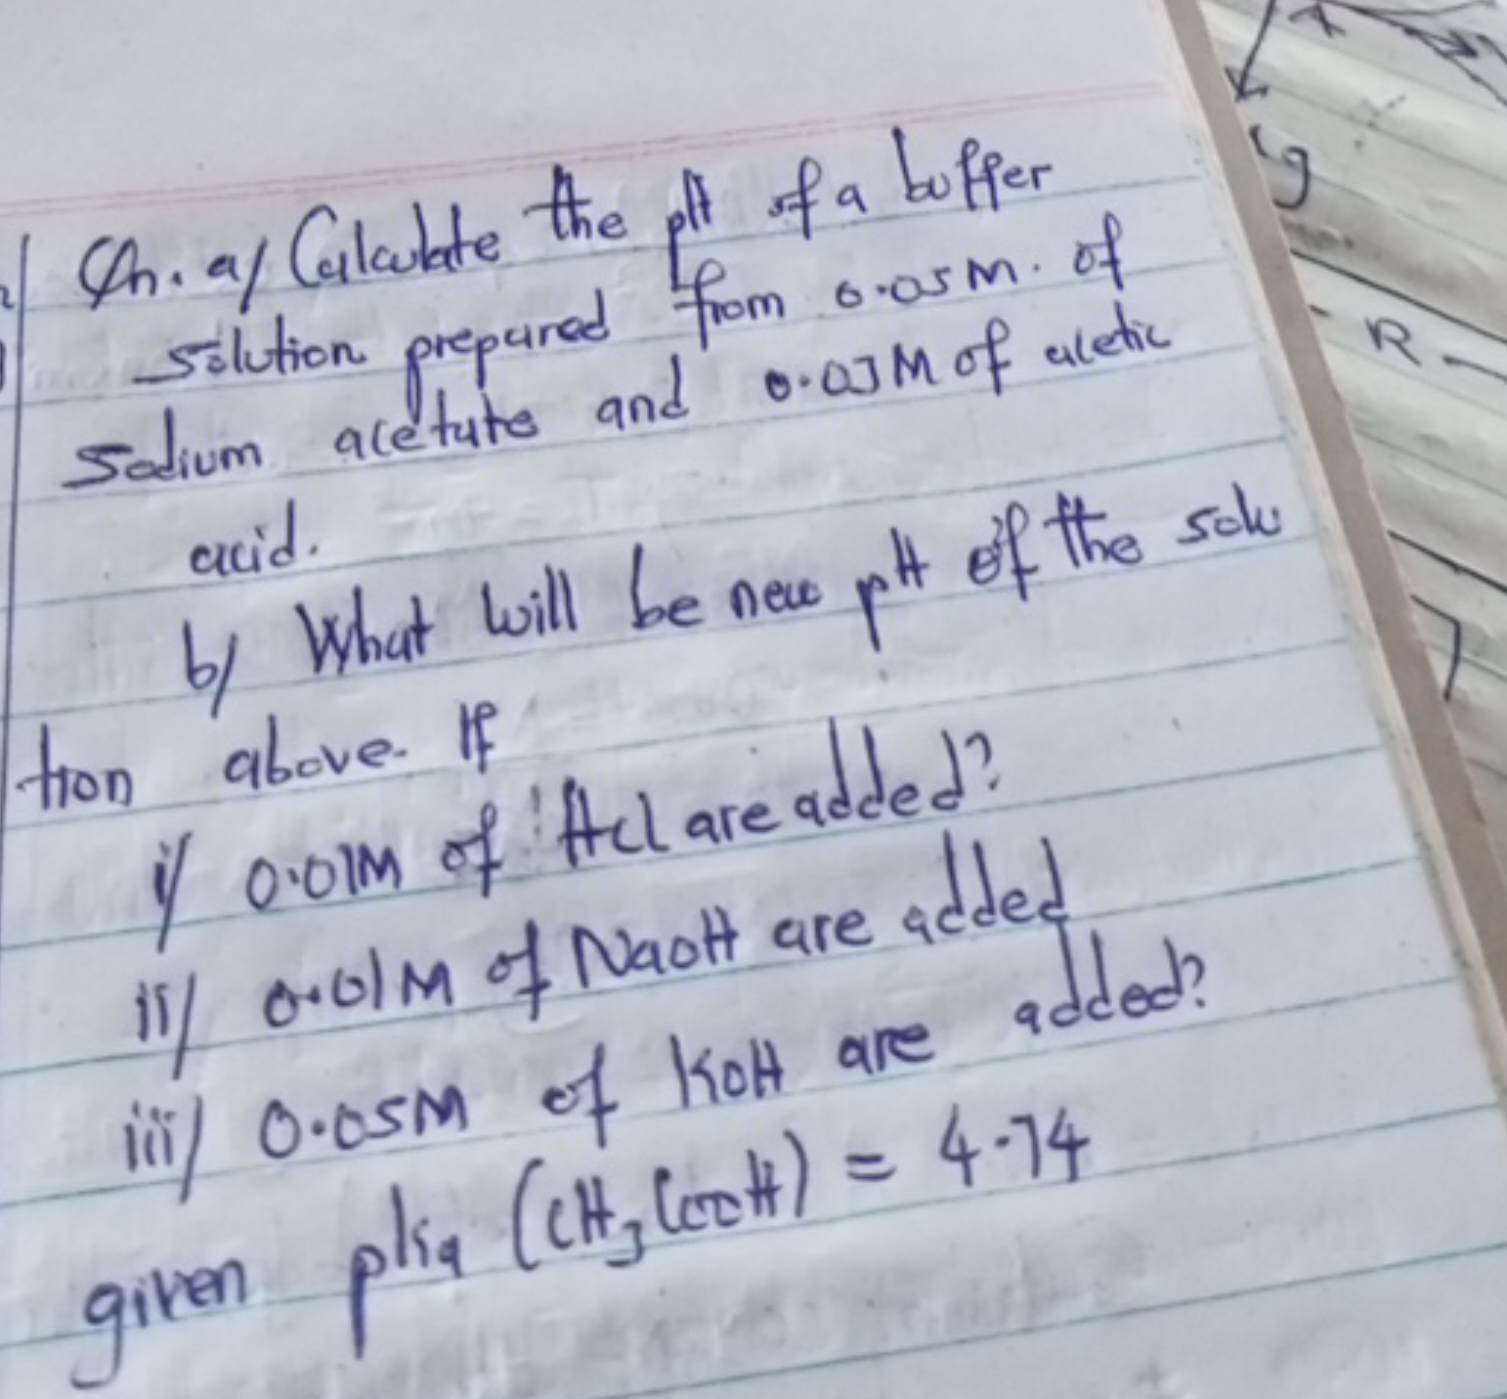 Qn. a/ Calculate the pH of a buffer
solution prepared from 0.05M. of
sodium acetate and 0.03M of acetic
acid.
b/ What will be new pH of the solu
tion above. If
i/ 0.01M of HCl are added?
ii/ 0.01M of NaOH are added
iii/ 0.05M of KOH are added?
given pKa (CH3COOH) = 4.74
g
R